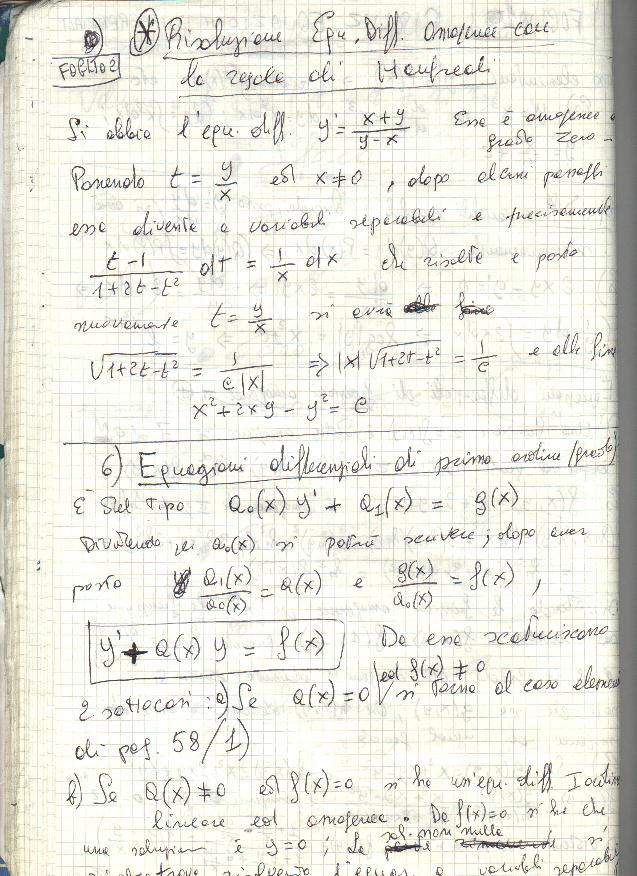 (*) Risoluzione Equ. Diff. Omogenee con
FOGLIO 2
la regola di Manfredi
Si abbia l'equ. diff. y' = (x+y)/(y-x) Essa è omogenea
grado zero -
Ponendo t = y/x ed x ≠ 0, dopo alcuni passaggi
essa diventa a variabili separabili e precisamente
(t-1)/(1+2t-t²) dt = 1/x dx che risolta e posto
nuovamente t = y/x si avrà
√(1+2t-t²) = 1/(c|x|) ⇒ |x| √(1+2t-t²) = 1/c e alla fine
x² + 2xy - y² = C
6) Equazioni differenziali di primo ordine (grado)
È del tipo a₀(x) y' + a₁(x) = g(x)
Dividendo per a₀(x) si potrà scrivere; dopo aver
posto a₁(x)/a₀(x) = a(x) e g(x)/a₀(x) = f(x),
y' + a(x) y = f(x) Da essa scaturiscono
2 sottocasi: a) Se a(x) = 0 ed f(x) ≠ 0 si torna al caso
di pag. 58/1)
b) Se a(x) ≠ 0 ed f(x) = 0 si ha un'equ. diff. I
lineare ed omogenea. Da f(x)=0 si ha che
una soluzione è y=0; La sol. non nulla si